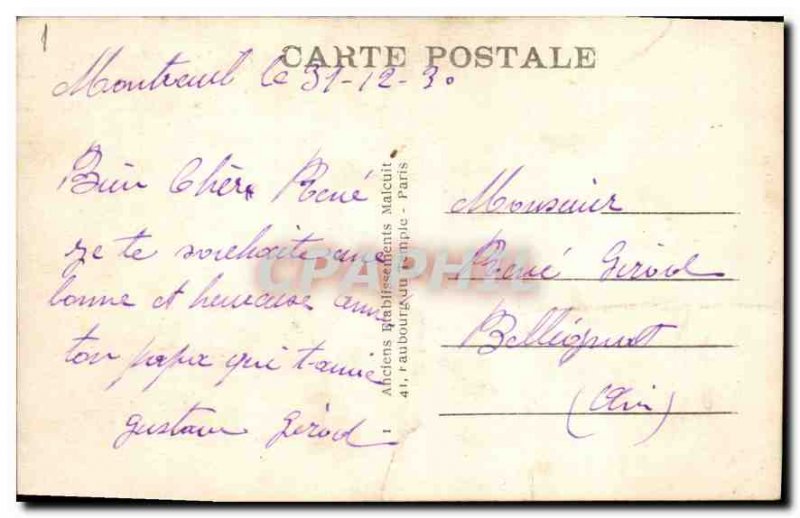 1
CARTE POSTALE
Montreuil le 31-12-30
Bien Chère René
je te souhaite une
bonne et heureuse anné
ton papa qui t'aime
Gustave Gérod
1 Anciens Etablissements Malcuit
41, Faubourg du Temple - Paris
Monsieur
René Gérod
(Ain)
CPAPHIL